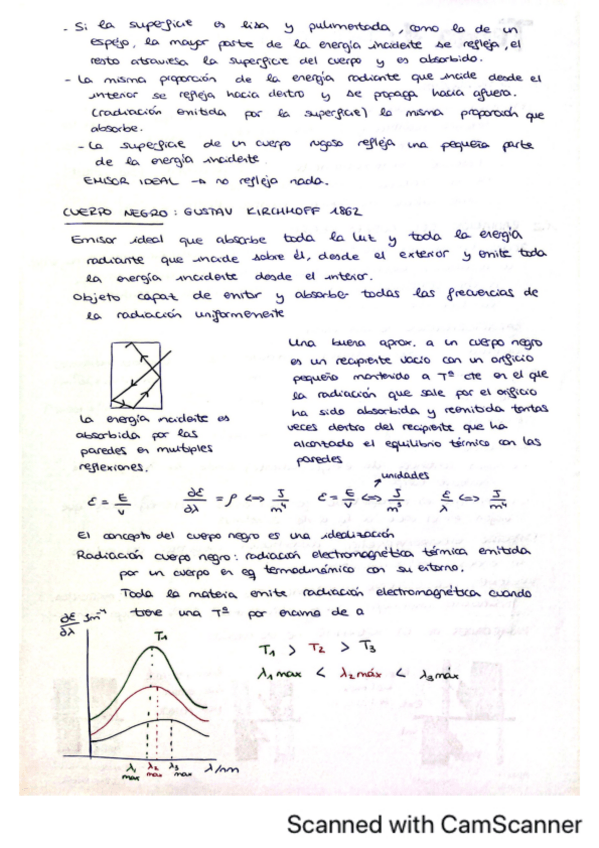 - Si la superficie es lisa y pulimentada, como la de un
espejo, la mayor parte de la energía incidente se refleja, el
resto atraviesa la superficie del cuerpo y es absorbido.
- La misma proporción de la energía radiante que incide desde el
interior se refleja hacia dentro y se propaga hacia afuera.
(radiación emitida por la superficie) la misma proporción que
absorbe.
- La superficie de un cuerpo rugoso refleja una pequeña parte
de la energía incidente
EMISOR IDEAL → no refleja nada.
CUERPO NEGRO: GUSTAV KIRCHHOFF 1862
Emisor ideal que absorbe toda la luz y toda la energía
radiante que incide sobre él, desde el exterior y emite toda
la energía incidente desde el interior.
Objeto capaz de emitir y absorber todas las frecuencias de
la radiación uniformemente
Una buena aprox. a un cuerpo negro
es un recipiente vacío con un orificio
pequeño mantenido a Tª cte en el que
la radiación que sale por el orificio
ha sido absorbida y reemitida tantas
veces dentro del recipiente que ha
alcanzado el equilibrio térmico con las
paredes
La energía incidente es
absorbida por las
paredes en multiples
reflexiones.
unidades
ε = E/V ∂ε/∂λ = ρ <=> J/m⁴ ε = E/V <=> J/m³ ε/λ <=> J/m⁴
El concepto del cuerpo negro es una idealización
Radiación cuerpo negro: radiación electromagnética térmica emitida
por un cuerpo en eq termodinámico con su entorno.
Toda la materia emite radiación electromagnética cuando
tiene una Tª por encima de 0
∂ε/∂λ Jm⁻⁴
T₁
T₁ > T₂ > T₃
λ₁ max < λ₂ máx < λ₃ máx
λ₁ max λ₂ max λ₃ max λ/nm
Scanned with CamScanner